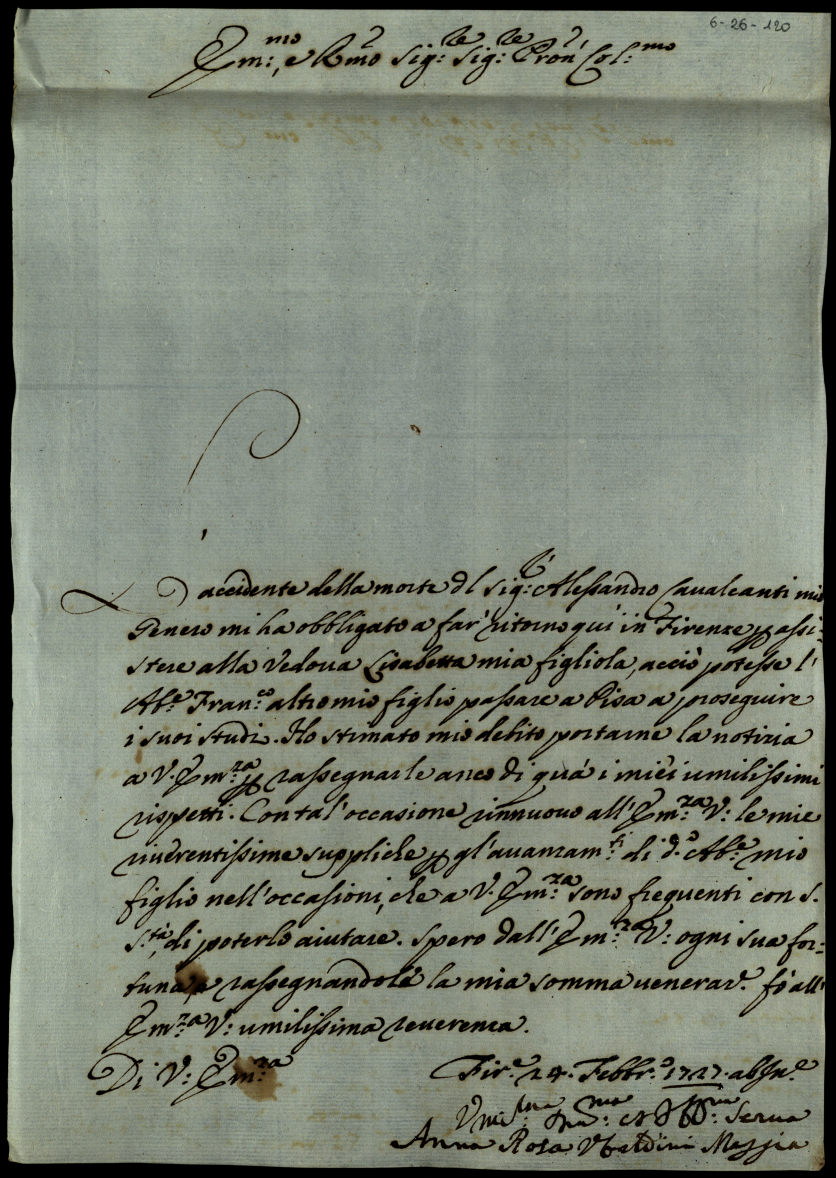 6-26-120
Em:mo, e Rmo Sig:re Sig:re Pron Col:mo
L'accidente della morte dl Sig:r Alessandro Cavalcanti mio
Genero mi ha obbligato a far ritorno quì in Firenze p assi-
stere alla Vedova Lisabetta mia figliola, acciò potesse l'
Ab.e Fran.co altro mio figlio passare a Pisa a proseguire
i suoi studi. Ho stimato mio debito portarne la notizia
a V. Em:za p rassegnarle anco di quà i mièi umilissimi
rispetti. Con tal'occasione rinnuovo all'Em:za V: le mie
riverentissime suppliche p gl'avanzam:ti di d.o Ab:e mio
figlio nell'occasioni, che a V. Em:za sono frequenti con S.
S.tà, di poterlo aiutare. Spero dall'Em:za V: ogni sua for=
tuna, e rassegnandole la mia somma veneraz.e fò all'
Em:za V: umilissima reverenza.
Di V: Em:za
Fir.e 24. Febbr.o 1727. ab In.e
Serva
Anna Rosa Ubaldini